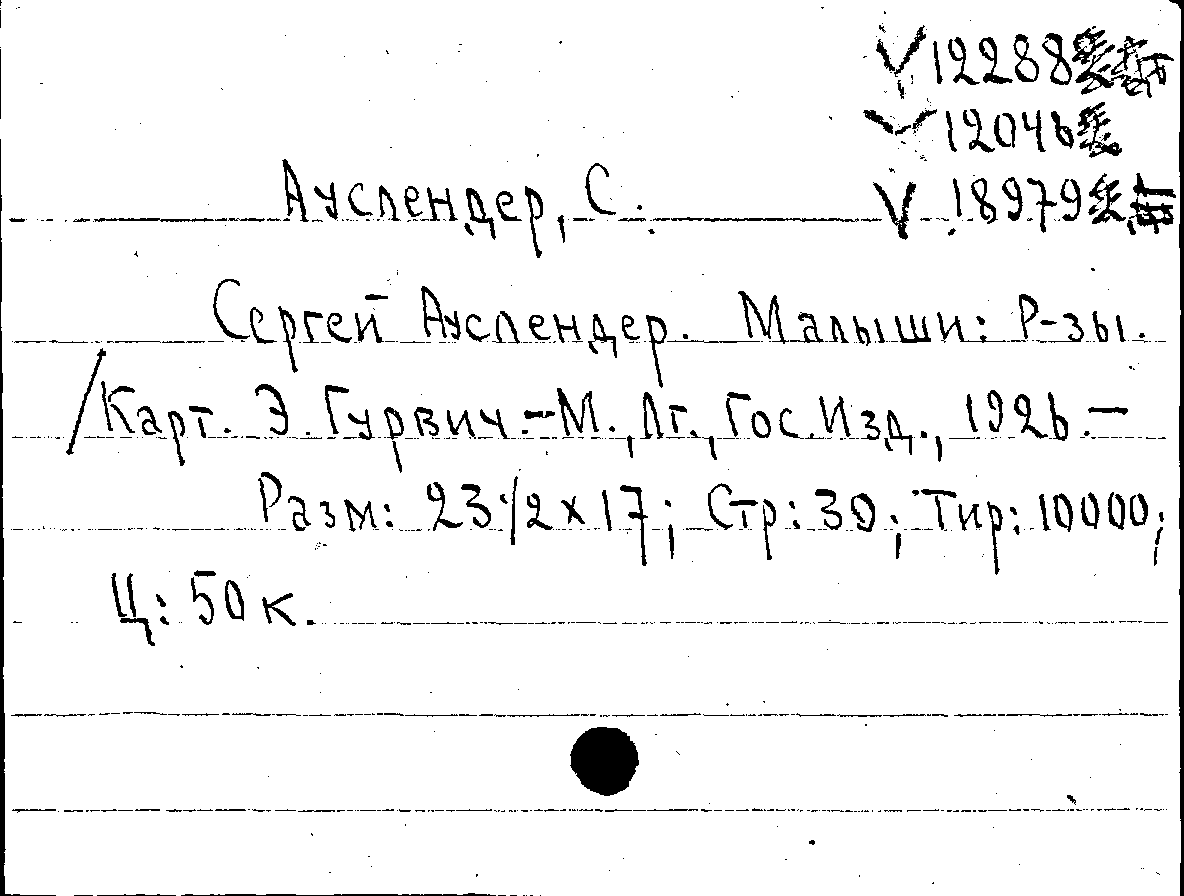 V 12288
V 12046
Ауслендер, С.
V 18979
Сергей Ауслендер. Малыши: Р-зы.
/Карт. Э. Гурвич.-М., Лг., Гос. Изд., 1926.-
Разм: 23 1/2 х 17; Стр: 30; Тир: 10000;
Ц: 50 к.